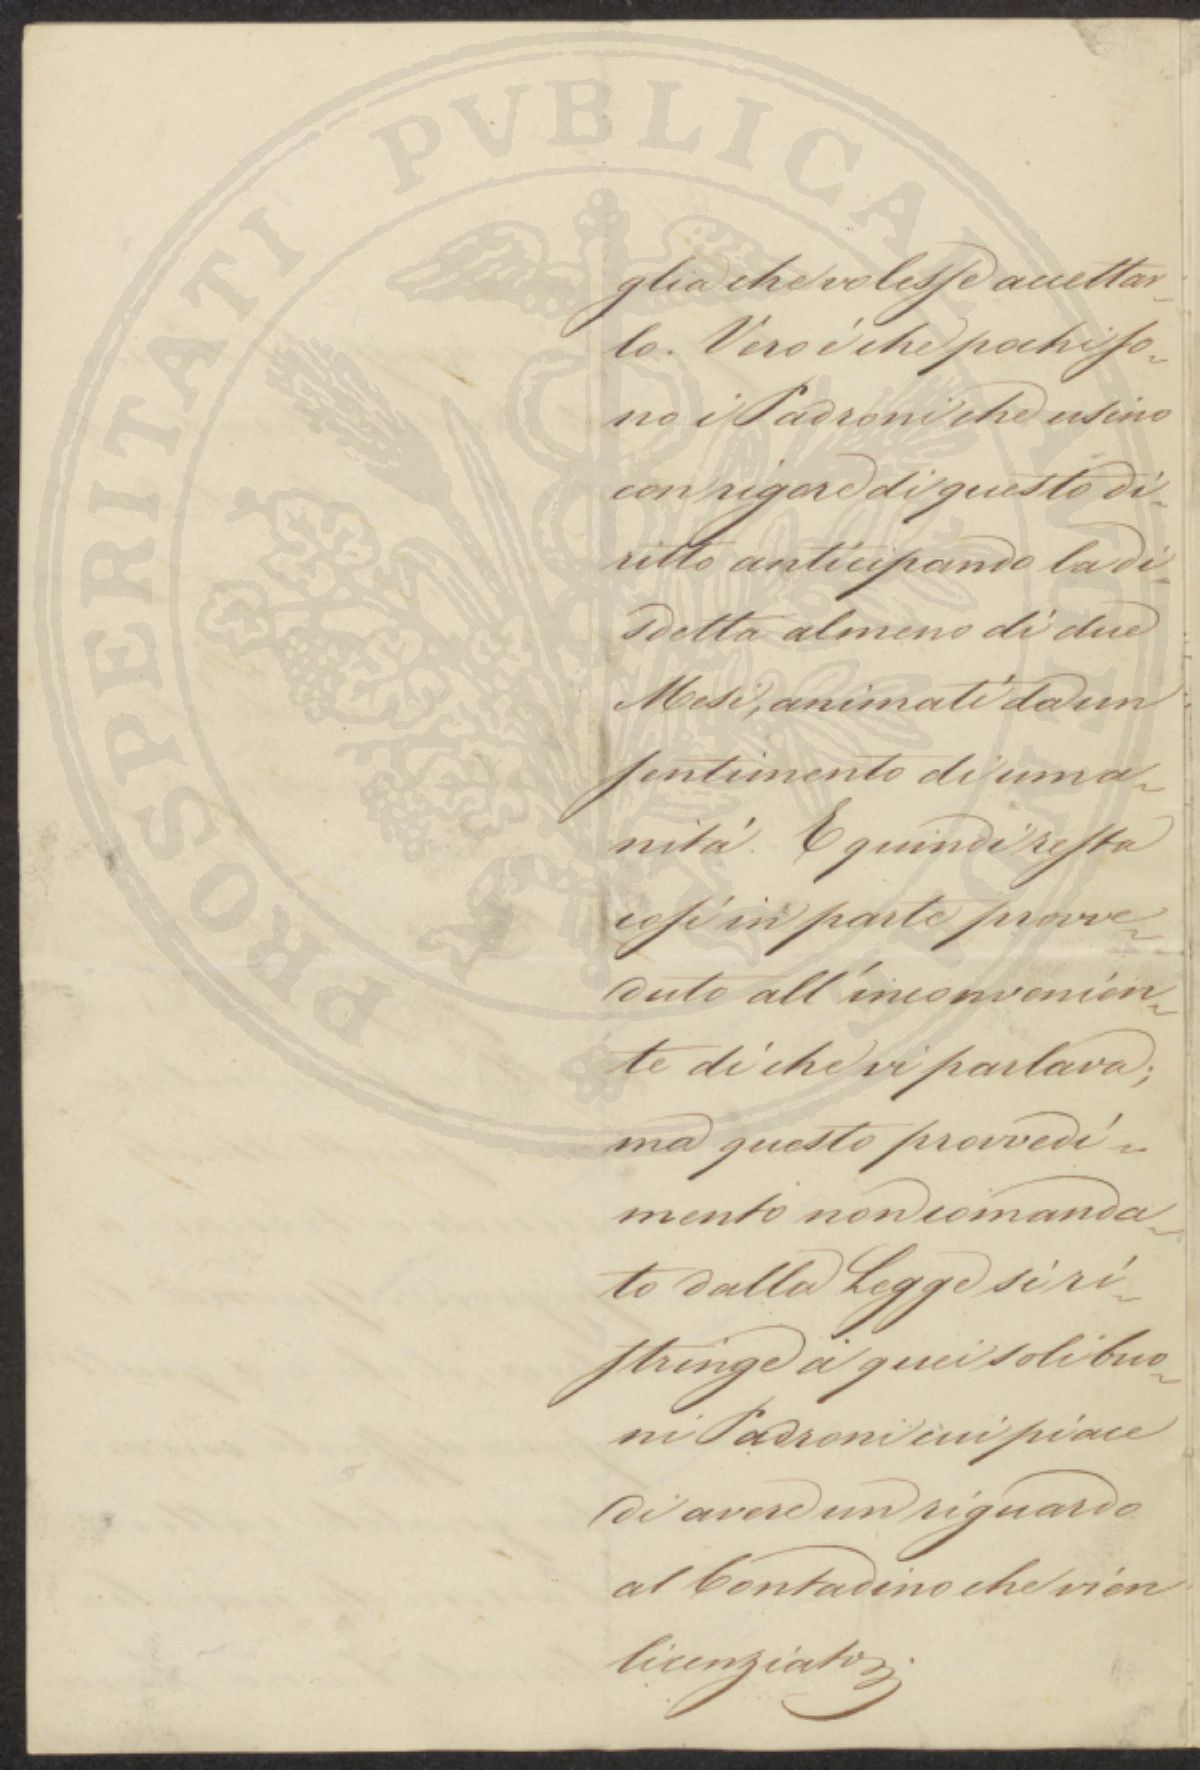 PROSPERITATI PVBLICAE
glia che volesse accettar-
lo. Vero é che pochi so-
no i Padroni che usino
con rigore di questo di-
ritto anticipando la di-
sdetta almeno di due
Mesi, animati da un
sentimento di uma-
nitá. E quindi resta
cosí in parte provve-
duto all'inconvenien-
te di che vi parlava;
ma questo provvedi-
mento non comanda-
to dalla Legge si ri-
stringe a quei soli buo-
ni Padroni cui piace
di avere un riguardo
al Contadino che vien
licenziato.